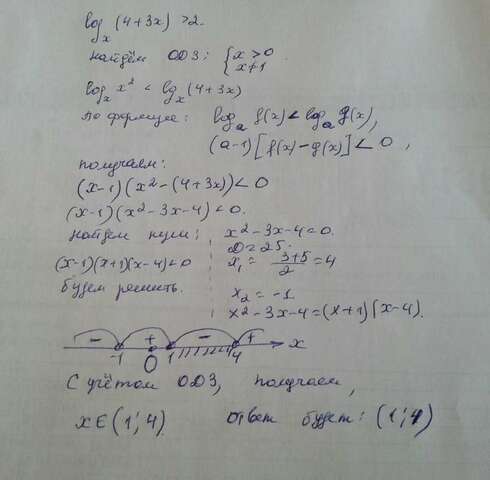 log_x (4+3x) > 2.
найдём ОДЗ: { x > 0
x ≠ 1
log_x x² < log_x (4+3x)
По формуле: log_a f(x) < log_a g(x),
(a-1)[f(x) - g(x)] < 0,
получаем:
(x-1)(x² - (4+3x)) < 0
(x-1)(x² - 3x - 4) < 0.
найдем нули: x² - 3x - 4 = 0.
D = 25.
(x-1)(x+1)(x-4) < 0 x₁ = (3+5)/2 = 4
будем решить. x₂ = -1
x² - 3x - 4 = (x+1)(x-4).
- + - +
-1 0 1 4 x
С учётом ОДЗ, получаем,
x ∈ (1; 4) ответ будет: (1; 4)